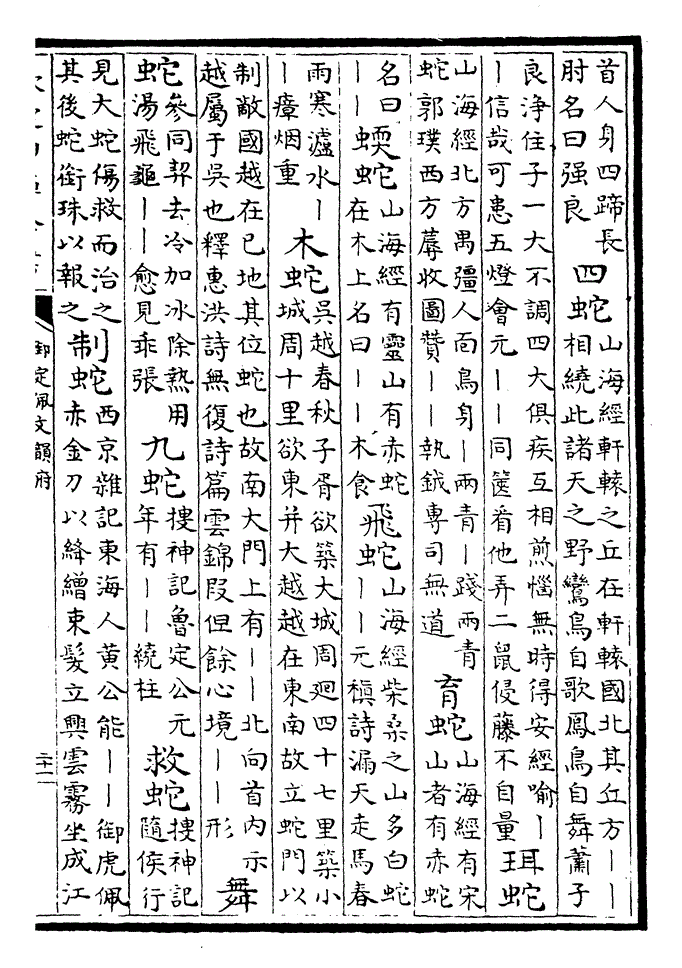 首人身四蹄長
肘名曰强良
四蛇
山海經軒轅之丘在軒轅國北其丘方丨丨
相繞此諸天之野鸞鳥自歌鳳鳥自舞蕭子
良淨住子一大不調四大俱疾互相煎惱無時得安經喻丨
丨信哉可患五燈會元丨丨同篋看他弄二鼠侵藤不自量
珥蛇
山海經北方禺彊人面鳥身丨兩青丨踐兩青
蛇郭璞西方蓐收圖贊丨丨執鉞專司無道
育蛇
山海經有宋
山者有赤蛇
名曰
丨丨
蝡蛇
山海經有靈山有赤蛇
在木上名曰丨丨木食
飛蛇
山海經柴桑之山多白蛇
丨丨元稹詩漏天走馬春
雨寒瀘水丨
丨瘴烟重
木蛇
吳越春秋子胥欲築大城周廻四十七里築小
城周十里欲東并大越越在東南故立蛇門以
制敵國越在巳地其位蛇也故南大門上有丨丨北向首內示
越屬于吳也釋惠洪詩無復詩篇雲錦段但餘心境丨丨形
舞蛇
參同契去冷加冰除熱用
湯飛龜丨丨愈見乖張
九蛇
搜神記魯定公元
年有丨丨繞柱
救蛇
搜神記
隨侯行
見大蛇傷救而治之
其後蛇銜珠以報之
制蛇
西京雜記東海人黃公能丨丨御虎佩
赤金刀以絳繒束髮立興雲霧坐成江
御定佩文韻府
二十一